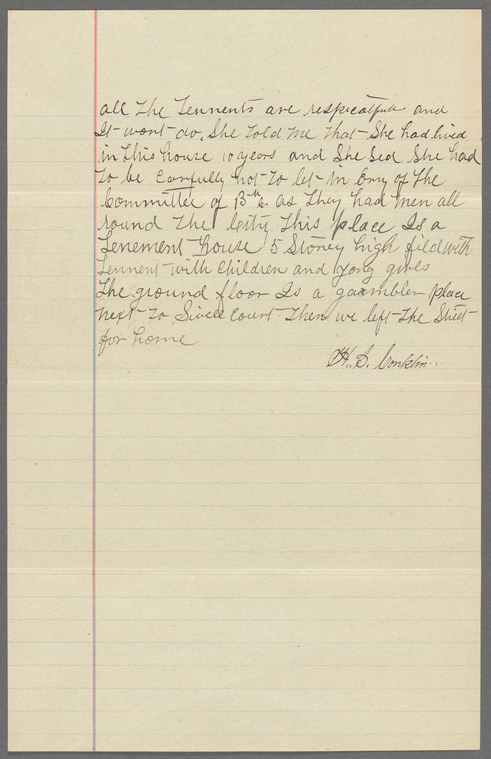 all The Tennents are respicatfull and
It wont do. She Told me That She had lived
in This house 10 years and She Sed She had
To be Carfully not To let in Eny of The
Committee of 15th as They had men all
round The City This place Is a
Tenement house 5 Storey high filed with
Tennent with Children and yong girls
The ground floor Is a gaambler place
next To Sivell Court Then we left The Street
for home
H. S. Conklin